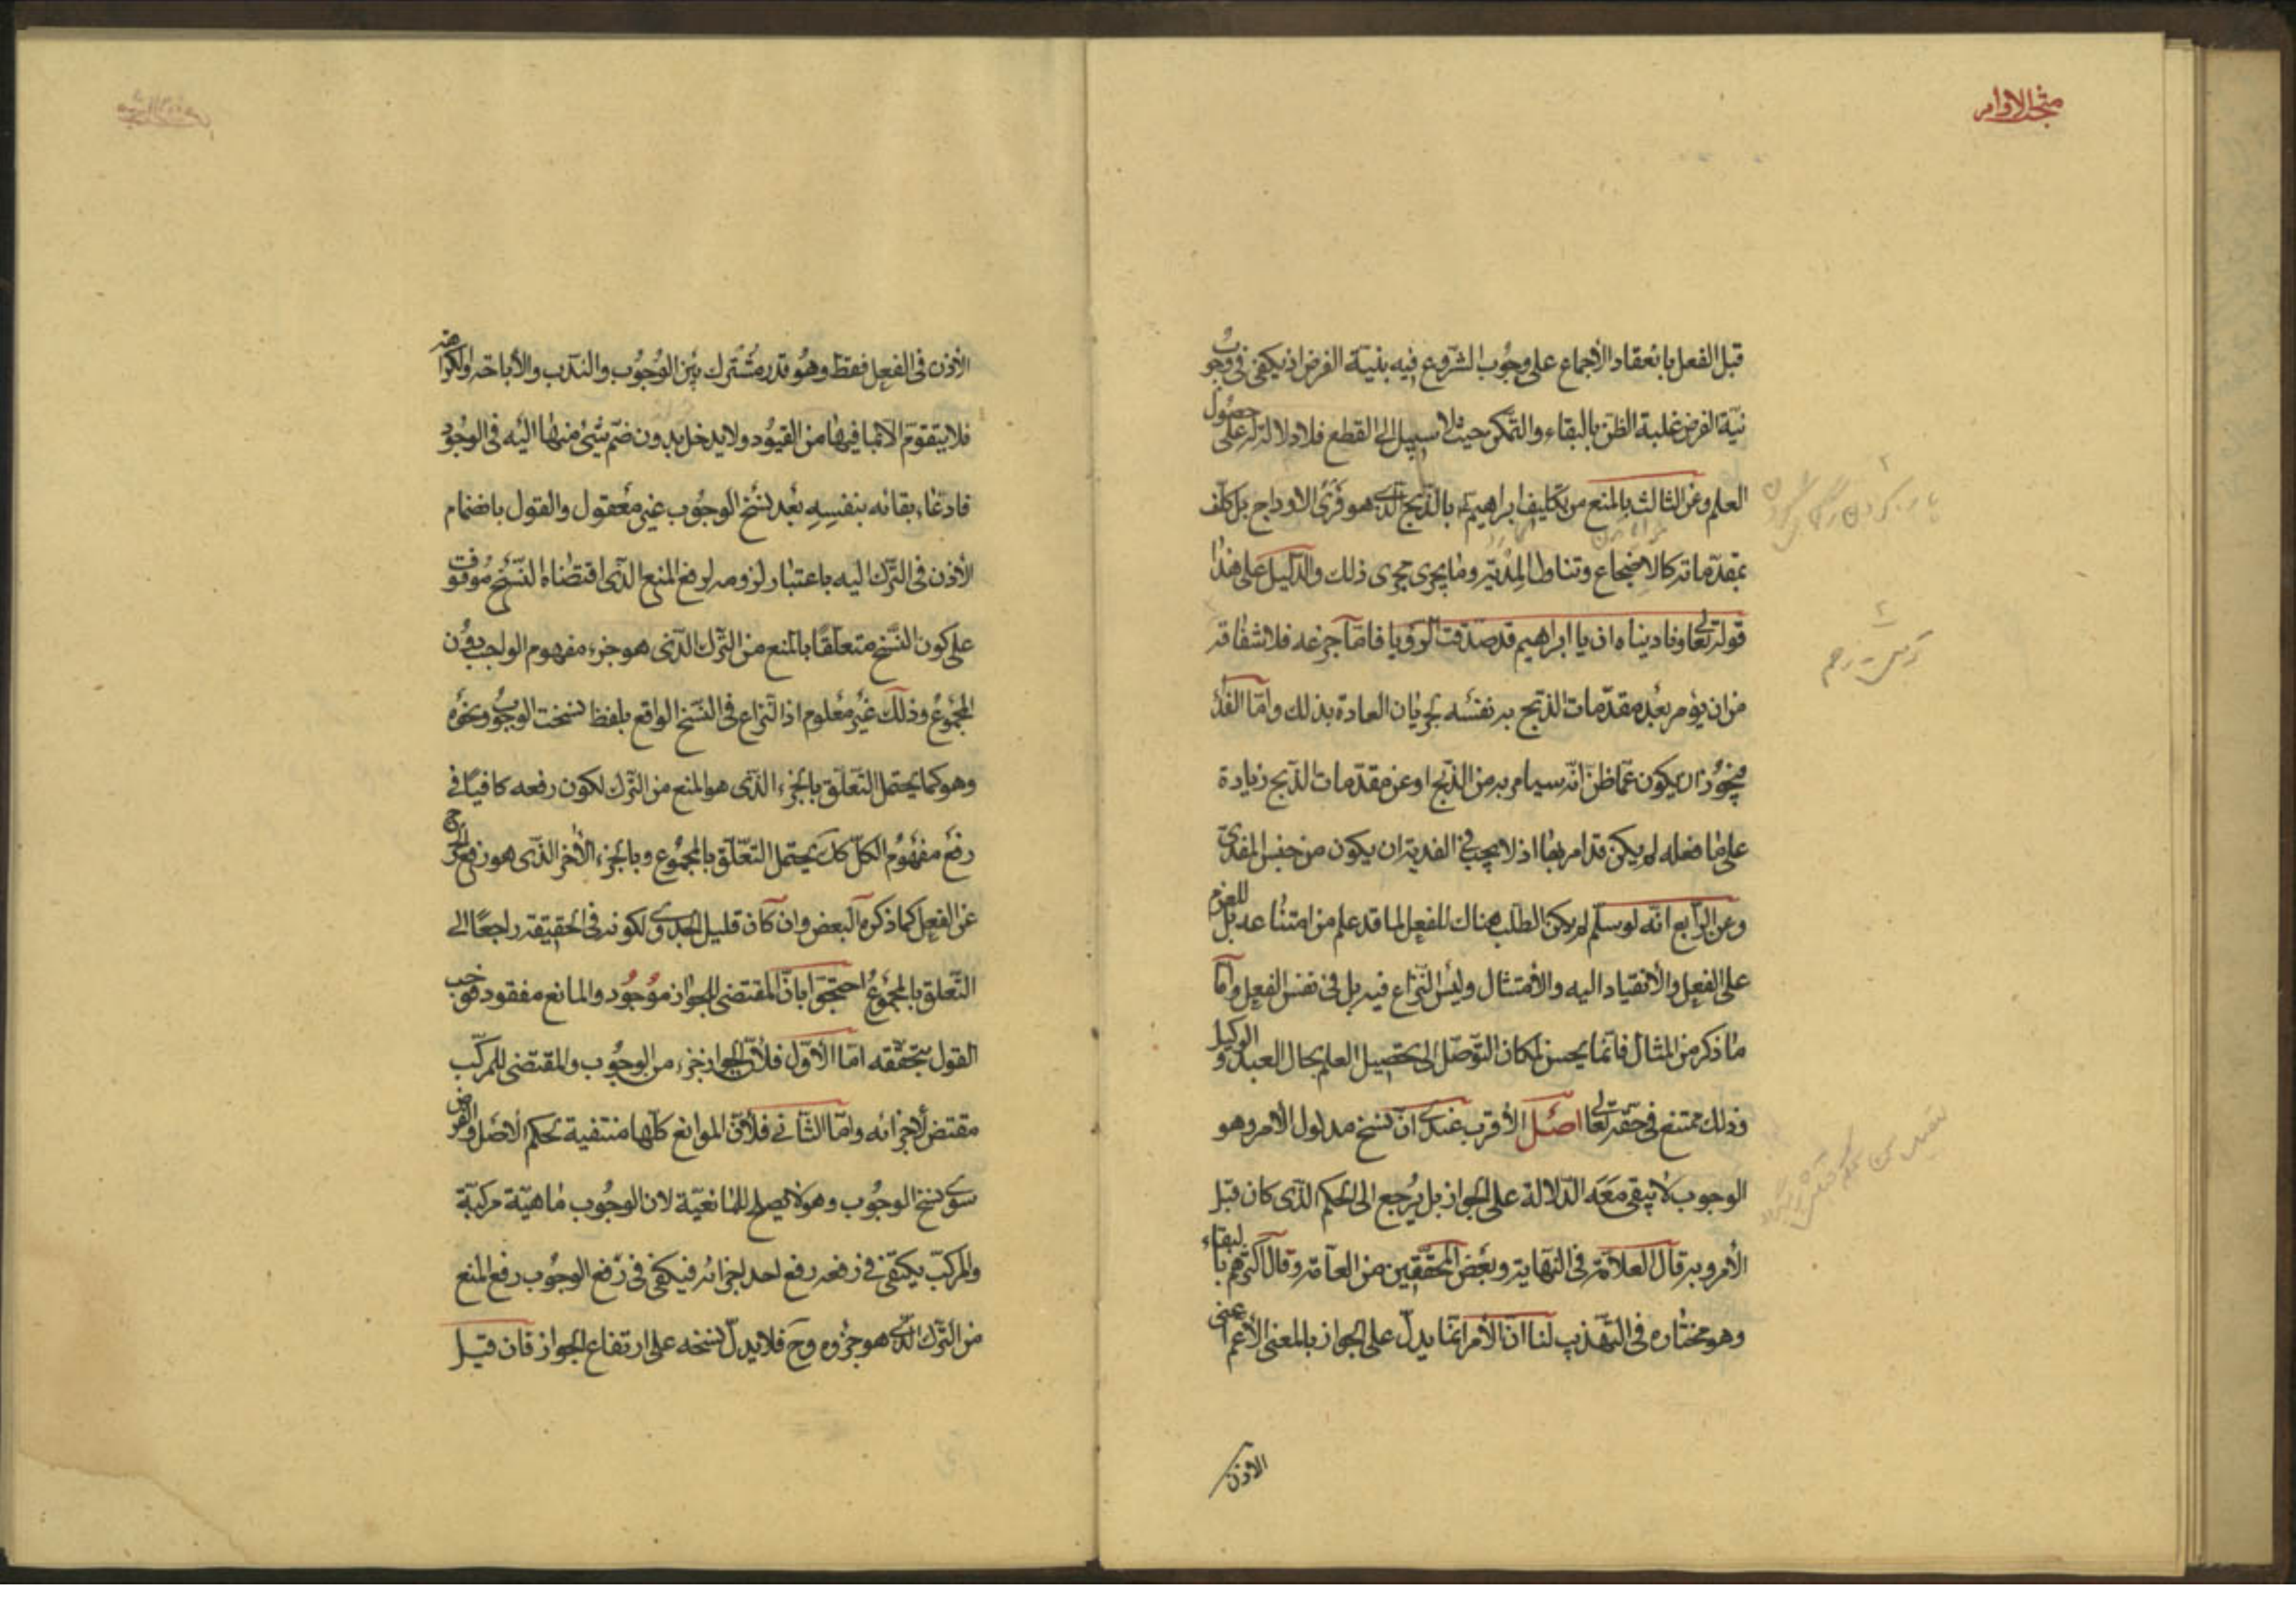 مبحث الاوامر
قبل الفعل بانعقاد الأجماع على وجُوب الشّروع فيه بنيّة الفرض اذ يكفى فى وجُوب
نيّة الفرض غلبة الظّن بالبقاء والتمكّن حيث لا سبيل الى القطع فلا دلالة له على حصُول
العلم وعن الثالث بالمنع من تكليف ابراهيم بالذّبح الّذى هو فرْىُ الاوداج بل كلّف
بمقدّماته كالاضجاع وتناول المِدْيَة وما يجرى مجرى ذلك والدّليل على هذا
قوله تعالى وناديناه ان يا ابراهيم قد صدّقت الرّؤيا فامّا جزعه فلاشفاقه
من ان يؤمر بعْد مقدّمات الذّبح به نفسه لجريان العادة بذلك وامّا الفداء
فيجُوز ان يكون عمّا ظنّ انّه سيامر به من الذّبح او عن مقدّمات الذّبح زيادة
على ما فعله لم يكن قد امر بها اذ لا يجب فى الفدية ان يكون من جنس المفدىّ
وعن الرّابع انّه لو سلّم لم يكن الطّلب هناك للفعل لما قد علم من امتناعه بل للعزم
على الفعل والأنقياد اليه والأمتثال وليْس النّزاع فيه بل فى نفس الفعل وامّا
ما ذكر من المثال فانّما يحسن لمكان التّوصّل الى تحصيل العلم بحال العبد والوكيل
وذلك ممتنع فى حقّه تعالى اصْل الأقرب عندى انّ نسخ مدلول الأمر وهو
الوجوب لا يبقى مَعَه الدّلالة على الجواز بل يرْجع الى الحكم الذّى كان قبل
الأمر وبه قال العلاّمة فى النّهاية وبعْض المحقّقين من العامّة وقال اكثرهم بالبقاء
وهو مختاره فى التهذيب لنا انّ الأمر انّما يدلّ على الجواز بالمعنى الأعمّ اعنى
الاذن
الأذن فى الفعل فقط وهُو قدر مُشْترك بيْن الوُجُوب والندب والأباحة والكراهة
فلا يتقوّم الا بما فيها من القيُود ولا يدخل بدون ضمّ شئ منها اليْه فى الوجُود
فادعاء بقائه بنفسِهِ بعْد نسْخ الوجُوب غير معْقول والقول بانضمام
الأذن فى التّرك اليه باعتبار لزومه لرفع المنع الذّى اقتضاه النّسْخ موْقوف
على كون النّسْخ متعلّقًا بالمنع من التّرك الذّى هو جزء مفهوم الواجب دوُن
المجموُع وذلك غيْر معْلوم اذ النّزاع فى النسّخ الواقع بلفظ نسخت الوجُوب ونحْوه
وهو كما يحتمل التعلّق بالجزء الذّى هو المنع من التّرك لكون رفعه كافيًا فى
رفع مفهُوم الكلّ كك يحتمل التعّلّق بالمجمُوع وبالجزء الأخر الذّى هو رفع الحرج
عن الفعل كما ذكره البعض وان كان قليل الجدوى لكونه فى الحقيقة راجعًا الى
التّعلق بالمجموُع احتجّوا بانّ المقتضى للجواز موْجُود والمانع مفقود فوجب
القول بتحقّقه امّا الأوّل فلأنّ الجواز جزء من الوجُوب والمقتضى للمركّب
مقتض لأجزائه وامّا الثّانى فلأنّ الموانع كلّها منتفية بحكم الأصْل والفرض
سوى نسْخ الوجُوب وهو لا يصلح للمانعيّة لان الوجُوب ماهيّة مركبّة
والمركّب يكتفى فى رفعه رفع احد اجزائه فيكفى فى رفع الوجُوب رفع المنع
من التّرك الذّى هو جزؤه وح فلا يدلّ نسخه على ارتفاع الجواز فان قيل